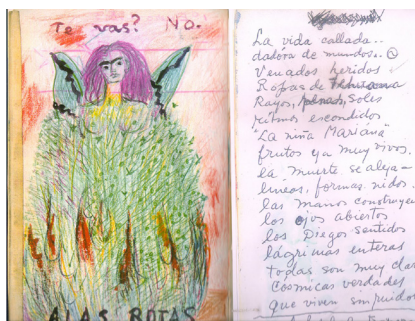 Te vas? NO.
ALAS ROTAS
La vida callada..
dadora de mundos..
Venados heridos
Ropas de Tehuana
Rayos, penas, Soles
ritmos escondidos
"La niña Mariana"
frutos ya muy vivos.
la muerte se aleja –
lineas, formas, nidos
las manos construyen
los ojos abiertos
los Diegos sentidos
lágrimas enteras
todas son muy clar
Cósmicas verdades
que viven sin ruidos